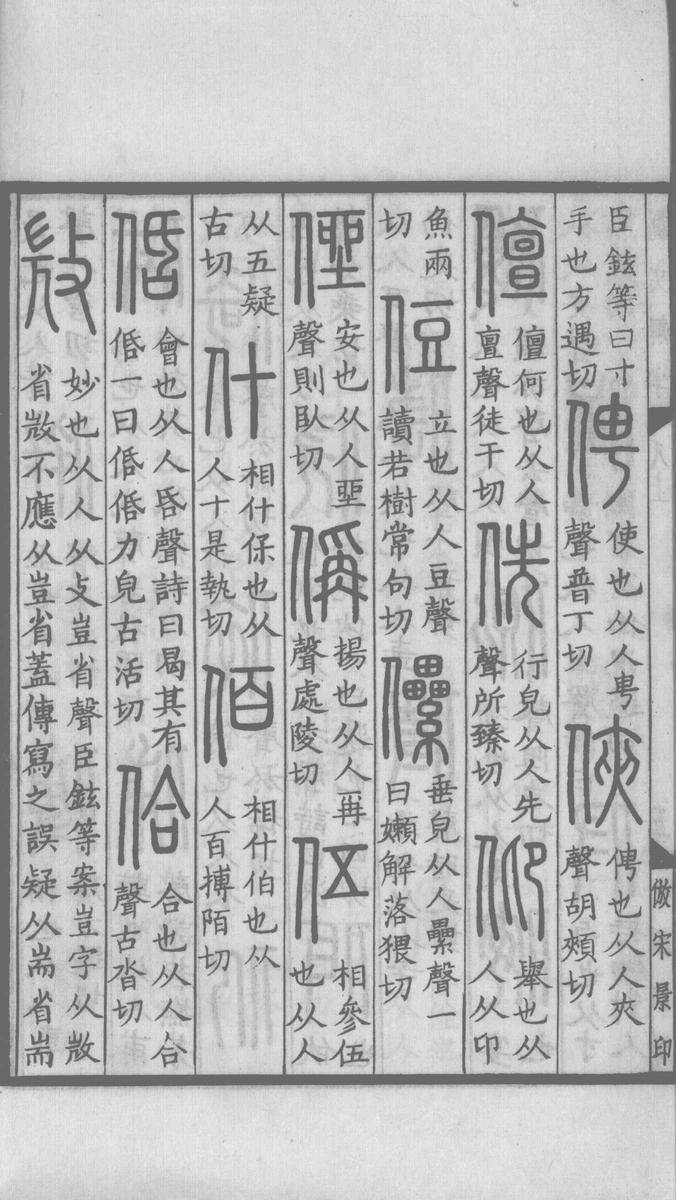 臣鉉等曰寸
手也方遇切
俜
使也从人甹
聲普丁切
俠
俜也从人夾
聲胡頰切
儃
儃何也从人
亶聲徒干切
侁
行皃从人先
聲所臻切
仰
舉也从
人从卬
魚兩
切
侸
立也从人豆聲
讀若樹常句切
儽
垂皃从人纍聲一
曰嬾解落猥切
侳
安也从人坐
聲則臥切
偁
揚也从人爯
聲處陵切
伍
相參伍
也从人
从五疑
古切
什
相什保也从
人十是執切
佰
相什伯也从
人百搏陌切
佸
會也从人𠯑聲詩曰曷其有
佸一曰佸佸力皃古活切
佮
合也从人合
聲古沓切
𢼸
妙也从人从攴豈省聲臣鉉等案豈字从𢼸
省𢼸不應从豈省蓋傳寫之誤疑从耑省耑
倣宋景印